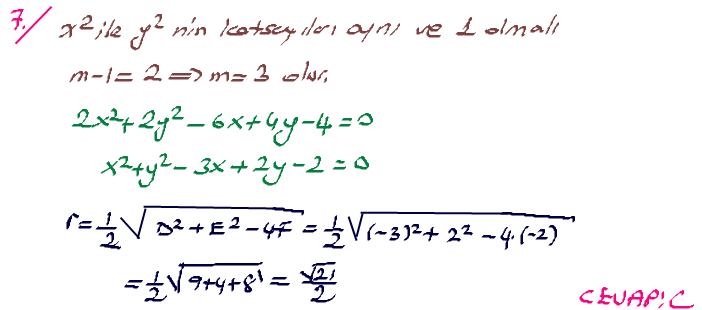 7./ x² ile y² nin katsayıları aynı ve 1 olmalı
m-1=2 ⇒ m=3 olur.
2x²+2y²-6x+4y-4=0
x²+y²-3x+2y-2=0
r=½√(D²+E²-4F)=½√((-3)²+2²-4.(-2))
=½√(9+4+8)=√21/2
CEVAP: C